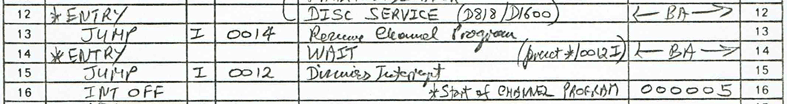 12 *ENTRY DISC SERVICE (D818/D1600) <— BA —> 12
13 JUMP I 0014 Resume Channel Program 13
14 *ENTRY WAIT (protect */0012 I) <— BA —> 14
15 JUMP I 0012 Dismiss Interrupt 15
16 INT OFF *Start of CHANNEL PROGRAM 000005 16